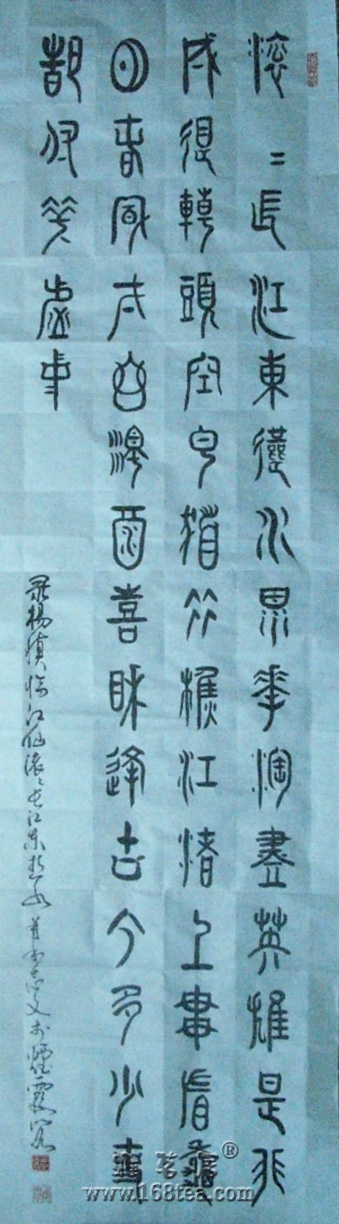 滚〻長江東逝水浪花淘盡英雄是非
成敗轉頭空白髮漁樵江渚上慣看秋
月春風一壺濁酒喜相逢古今多少事
都付笑談中
楊慎臨江仙滚〻長江東逝水
www.168tea.com